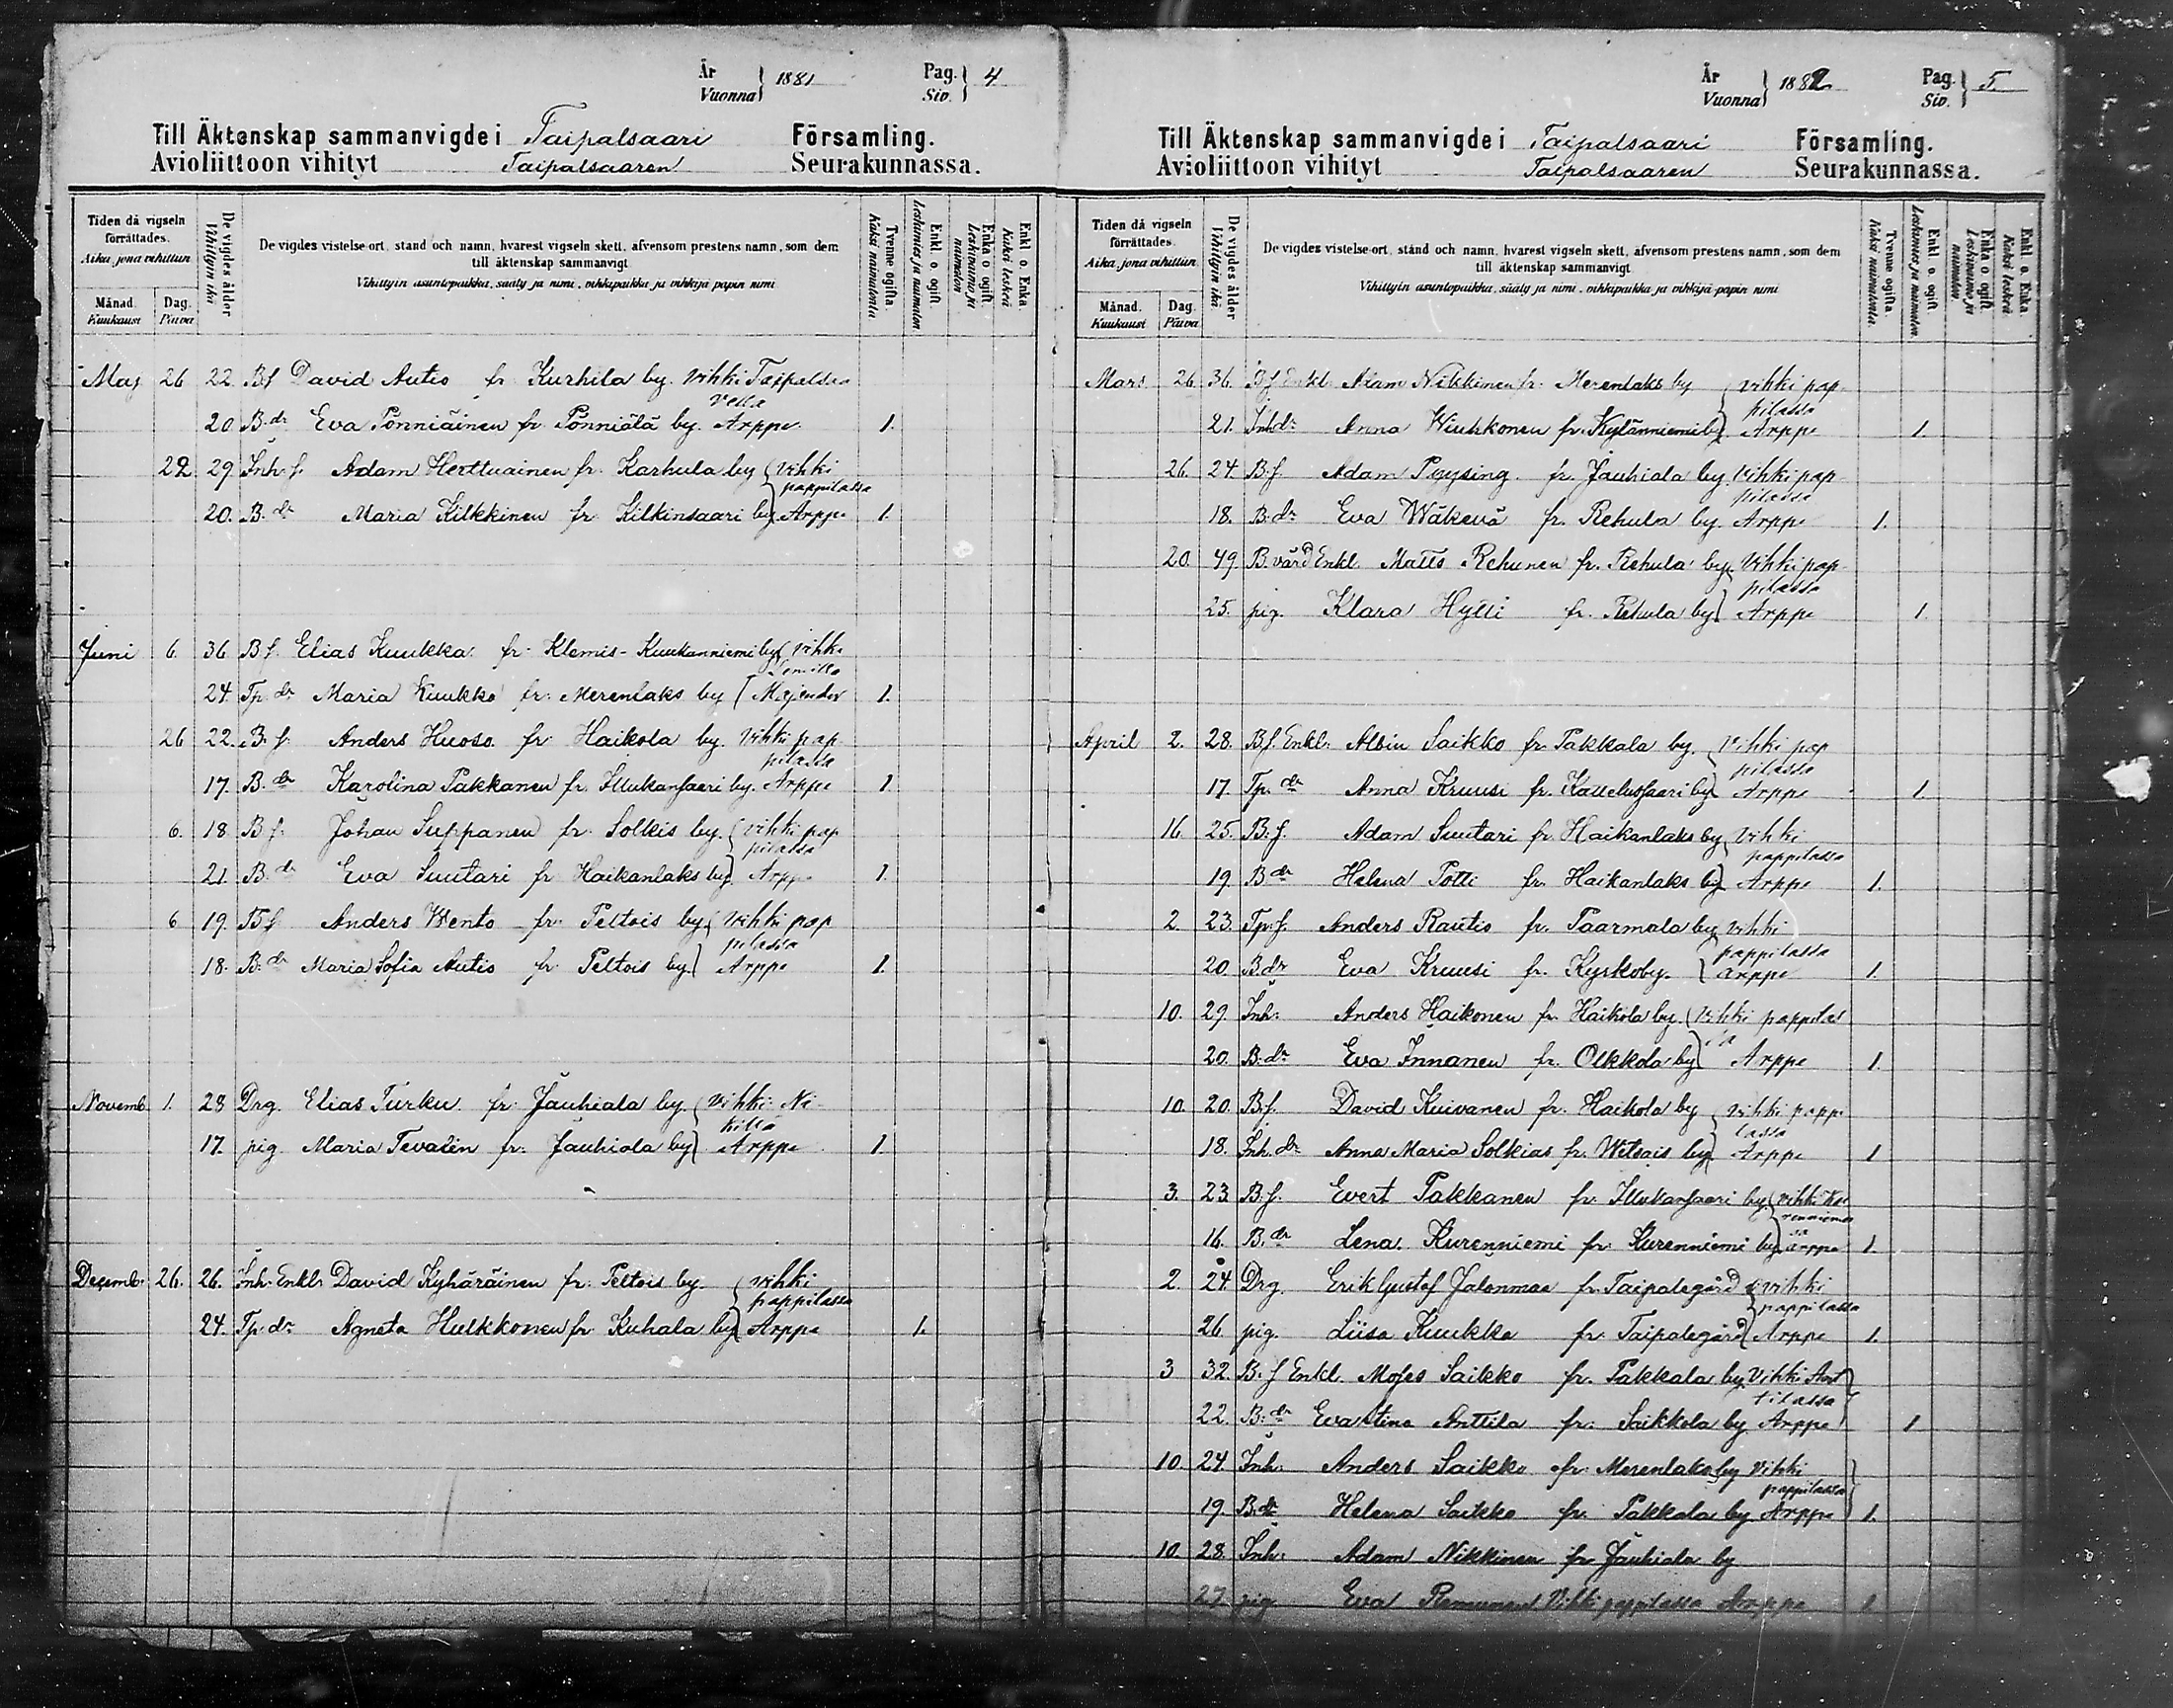 År
Vuonna } 1881
Pag.
Siv. } 4
Till Äktenskap sammanvigde i Taipalsaari Församling.
Avioliittoon vihityt Taipalsaaren Seurakunnassa.
Tiden då vigseln förrättades.
Aika, jona vihittiin
Månad.
Kuukausi
Dag.
Päivä
De vigdes ålder
Vihittyin ikä
De vigdes vistelse-ort, stånd och namn, hvarest vigseln skett, äfvensom prestens namn, som dem
till äktenskap sammanvigt
Vihittyin asuntopaikka, sääty ja nimi, vihkipaikka ja vihkijä papin nimi
Tvenne ogifta.
Kaksi naimatonta
Enkl. o. ogift.
Leskimies ja naimaton
Enka o ogift.
Leskivaimo ja naimaton
Enkl o. Enka.
Kaksi leskeä
Maj 26 22. Bf David Autio fr Kurhila by. Vihki Taipalsa
vella
20. B.dr Eva Pönniäinen fr Pönniälä by. Arppe. 1.
22 29. Inh.f. Adam Herttuainen fr. Karhula by ( Vihki
pappilassa
20. B.dr Maria Kilkkinen fr Kilkinsaari by } Arppe 1.
Juni 6. 36 Bf. Elias Kuukka fr Klemis-Kuukanniemi by { vihki
Lemilla
24. Tp.dr Maria Kuukka fr. Merenlaks by { Majander 1.
26 22. B.f. Anders Huoso fr Haikola by. Vihki pap
pilassa
17. B.dr Karolina Pakkanen fr. Illukansaari by. Arppe 1
6. 18 B f. Johan Suppanen fr. Solkis by. ( vihki pap
pilassa
21. B.dr Eva Suutari fr Haikanlaks by } Arppe 1.
6 19. Bf Anders Wento fr. Peltois by { Vihki pap
pilassa
18. B.dr Maria Sofia Autio fr Peltois by } Arppe 1.
Novemb. 1. 28 Drg. Elias Turku fr Jauhiala by. ( Vihki Ni
killä
17. pig Maria Tevalin fr. Jauhiala by } Arppe 1.
Decemb. 26. 26. Inh. Enkl. David Kyhäräinen fr. Peltois by. ( vihki
pappilassa
24. Tp.dr Agneta Hulkkonen fr Kuhala by } Arppe 1.
År
Vuonna } 1882
Pag.
Siv. } 5
Till Äktenskap sammanvigde i Taipalsaari Församling.
Avioliittoon vihityt Taipalsaaren Seurakunnassa.
Tiden då vigseln förrättades.
Aika, jona vihittiin
Månad.
Kuukausi
Dag.
Päivä
De vigdes ålder
Vihittyin ikä
De vigdes vistelse-ort, stånd och namn, hvarest vigseln skett, äfvensom prestens namn, som dem
till äktenskap sammanvigt
Vihittyin asuntopaikka, sääty ja nimi, vihkipaikka ja vihkijä papin nimi
Tvenne ogifta.
Kaksi naimatonta
Enkl. o. ogift
Leskimies ja naimaton.
Enka o ogift.
Leskivaimo ja naimaton
Enkl o. Enka.
Kaksi leskeä
Mars 26 36. Bf Enkl Adam Nikkinen fr. Merenlaks by { vihki pap
pilassa
21. Inh.dr Anna Wiuhkonen fr. Kylänniemi by } Arppe 1.
26. 24. B.f. Adam Pyysing fr. Jauhiala by. Vihki pap
pilassa
18. B.dr Eva Wäkevä fr. Rehula by. Arppe 1.
20. 49. B.värd Enkl. Matts Rehunen fr. Rehula by. Vihki pap
pilassa
25. pig. Klara Hytti fr. Rehula by } Arppe 1.
April 2. 28. Bf. Enkl. Albin Saikko fr. Pakkala by. { vihki pap
pilassa
17. Tp.dr Anna Kruusi fr. Kattelussaari by } Arppe 1.
16. 25. B.f. Adam Suutari fr. Haikanlaks by { Vihki
pappilassa
19. B dr Helena Potti fr. Haikanlaks by } Arppe 1.
2. 23. Tp.f. Anders Rautio fr. Paarmala by { vihki
pappilassa
20. B.dr Eva Kruusi fr. Kyrkoby. { arppe 1.
10. 29. Inh. Anders Haikonen fr. Haikola by. ( Vihki pappilas
sa
20. B.dr Eva Innanen fr. Olkkola by } Arppe 1.
10. 20. B.f. David Kuivanen fr. Haikola by { vihki pappi
lassa
18. Inh.dr Anna Maria Solkias fr. Wetsais by } Arppe 1
3. 23. B.f. Evert Pakkanen fr. Illukansaari by. { vihki Ku
renniemes
sä
16. B.dr Lena Kurenniemi fr. Kurenniemi by. } arppe 1.
2. 24 Drg. Erik Gustaf Jalonmaa fr. Taipalegård { vihki
pappilassa
26 pig. Liisa Kuukka fr. Taipalegård } Arppe 1.
3 32. B.f Enkl. Moses Saikko fr. Pakkala by. Vihki Ant
tilassa
22. B.dr Eva Stina Anttila fr. Saikkola by Arppe 1
10. 24. Inh. Anders Saikko fr. Merenlaks by Vihki
pappilassa
19. B.dr Helena Saikko fr. Pakkala by Arppe 1.
10. 28. Inh. Adam Nikkinen fr Jauhiala by
27. pig. Eva Vihki pappilassa Arppe 1